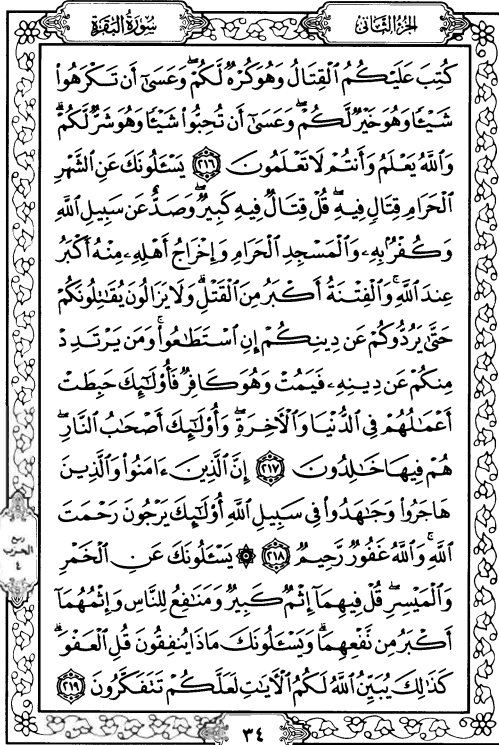 سُورَةُ البَقَرَةِ
الجُزءُ الثَّانِي
كُتِبَ عَلَيْكُمُ ٱلْقِتَالُ وَهُوَ كُرْهٌ لَّكُمْ ۖ وَعَسَىٰٓ أَن تَكْرَهُوا۟
شَيْـًٔا وَهُوَ خَيْرٌ لَّكُمْ ۖ وَعَسَىٰٓ أَن تُحِبُّوا۟ شَيْـًٔا وَهُوَ شَرٌّ لَّكُمْ ۗ
وَٱللَّهُ يَعْلَمُ وَأَنتُمْ لَا تَعْلَمُونَ ﴿٢١٦﴾ يَسْـَٔلُونَكَ عَنِ ٱلشَّهْرِ
ٱلْحَرَامِ قِتَالٍ فِيهِ ۖ قُلْ قِتَالٌ فِيهِ كَبِيرٌ ۖ وَصَدٌّ عَن سَبِيلِ ٱللَّهِ
وَكُفْرٌۢ بِهِۦ وَٱلْمَسْجِدِ ٱلْحَرَامِ وَإِخْرَاجُ أَهْلِهِۦ مِنْهُ أَكْبَرُ
عِندَ ٱللَّهِ ۚ وَٱلْفِتْنَةُ أَكْبَرُ مِنَ ٱلْقَتْلِ ۗ وَلَا يَزَالُونَ يُقَـٰتِلُونَكُمْ
حَتَّىٰ يَرُدُّوكُمْ عَن دِينِكُمْ إِنِ ٱسْتَطَـٰعُوا۟ ۚ وَمَن يَرْتَدِدْ
مِنكُمْ عَن دِينِهِۦ فَيَمُتْ وَهُوَ كَافِرٌ فَأُو۟لَـٰٓئِكَ حَبِطَتْ
أَعْمَـٰلُهُمْ فِى ٱلدُّنْيَا وَٱلْـَٔاخِرَةِ ۖ وَأُو۟لَـٰٓئِكَ أَصْحَـٰبُ ٱلنَّارِ ۖ
هُمْ فِيهَا خَـٰلِدُونَ ﴿٢١٧﴾ إِنَّ ٱلَّذِينَ ءَامَنُوا۟ وَٱلَّذِينَ
هَاجَرُوا۟ وَجَـٰهَدُوا۟ فِى سَبِيلِ ٱللَّهِ أُو۟لَـٰٓئِكَ يَرْجُونَ رَحْمَتَ
ٱللَّهِ ۚ وَٱللَّهُ غَفُورٌ رَّحِيمٌ ﴿٢١٨﴾ ۞ يَسْـَٔلُونَكَ عَنِ ٱلْخَمْرِ
وَٱلْمَيْسِرِ ۖ قُلْ فِيهِمَآ إِثْمٌ كَبِيرٌ وَمَنَـٰفِعُ لِلنَّاسِ وَإِثْمُهُمَآ
أَكْبَرُ مِن نَّفْعِهِمَا ۗ وَيَسْـَٔلُونَكَ مَاذَا يُنفِقُونَ قُلِ ٱلْعَفْوَ ۗ
كَذَٰلِكَ يُبَيِّنُ ٱللَّهُ لَكُمُ ٱلْـَٔايَـٰتِ لَعَلَّكُمْ تَتَفَكَّرُونَ ﴿٢١٩﴾
ربع
الحزب
٤
٣٤